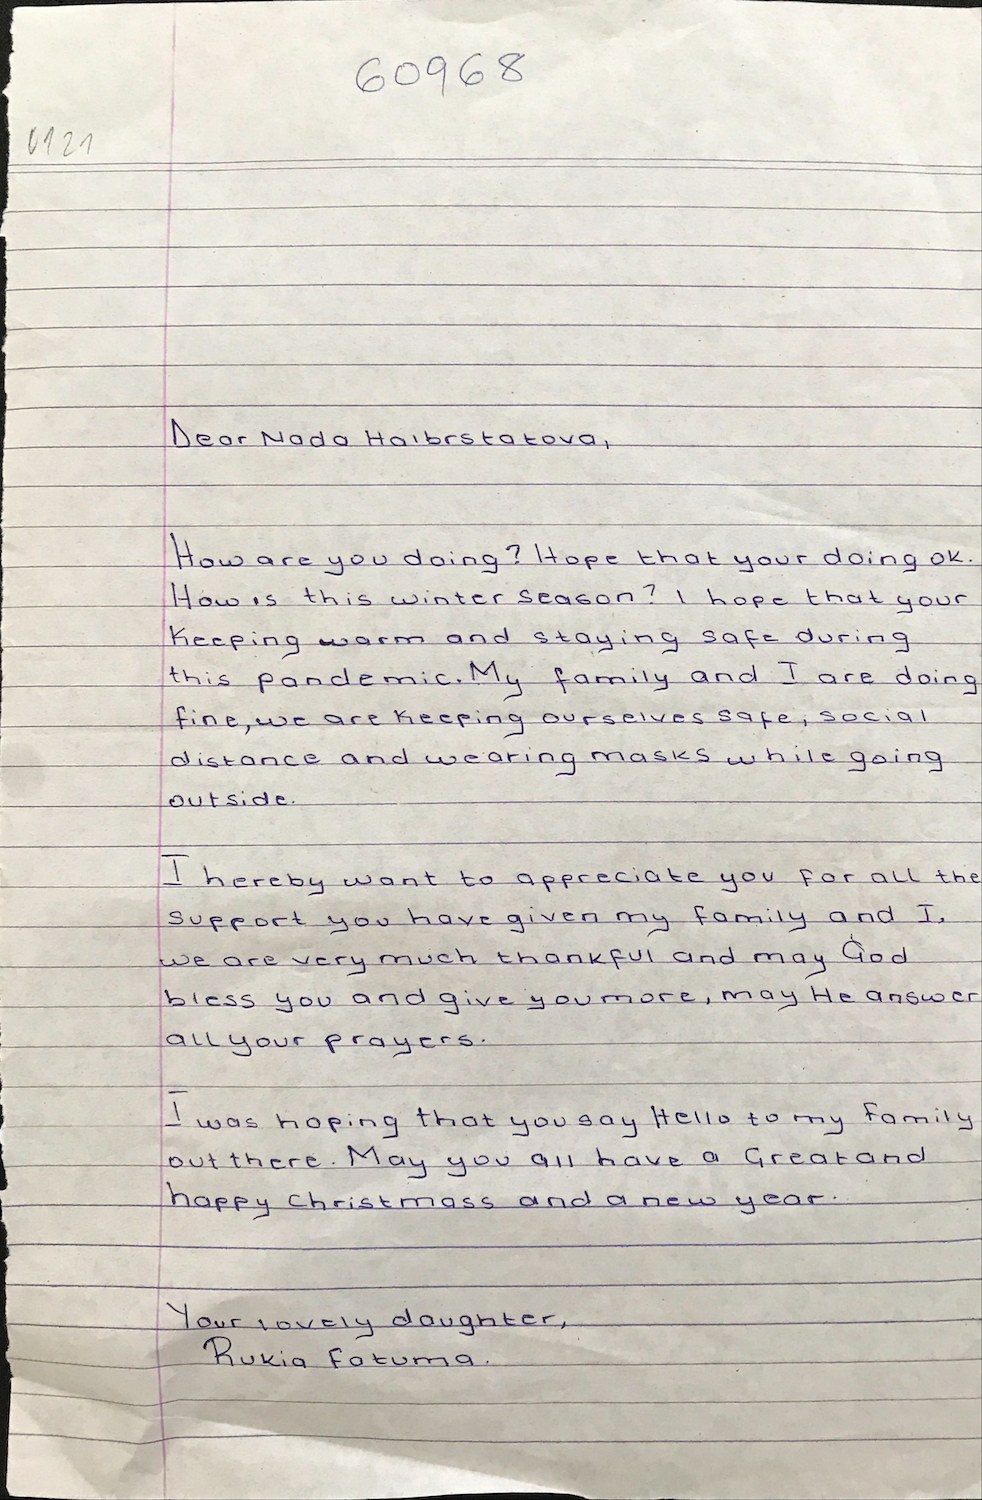 60968
0121
Dear Nada Halbrstatova,
How are you doing? Hope that your doing ok.
How is this winter season? I hope that your
keeping warm and staying safe during
this pandemic. My family and I are doing
fine, we are keeping ourselves safe, social
distance and wearing masks while going
outside.
I hereby want to appreciate you for all the
support you have given my family and I,
we are very much thankful and may God
bless you and give you more, may He answer
all your prayers.
I was hoping that you say Hello to my family
out there. May you all have a Great and
happy Christmass and a new year.
Your lovely daughter,
Rukia Fatuma.